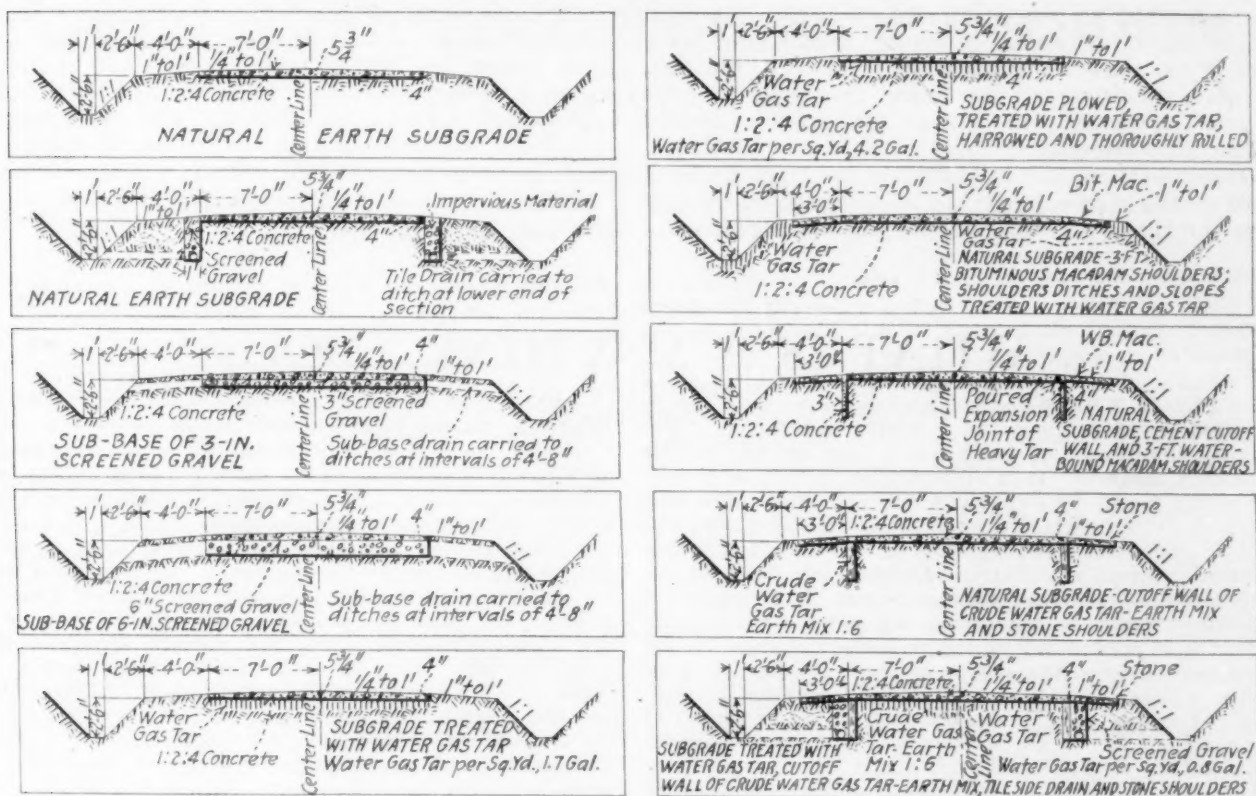 1' 2'-6" 4'-0" 7'-0" 5 3/4"
1" to 1' 1/4" to 1'
2'-6" 1:1 1:2:4 Concrete 4"
NATURAL EARTH SUBGRADE
Center Line
1' 2'-6" 4'-0" 7'-0" 5 3/4"
1" to 1' 1/4" to 1' Impervious Material
2'-6" 1:1 1:2:4 Concrete 4"
Screened
Gravel
1'
Center Line
NATURAL EARTH SUBGRADE
Tile Drain carried to
ditch at lower end of
section
1' 2'-6" 4'-0" 7'-0" 5 3/4" 4"
1/4" to 1' 1" to 1'
2'-6" 1:2:4 Concrete 3" Screened
Gravel 1:1
SUB-BASE OF 3-IN.
SCREENED GRAVEL
Center Line
Sub-base drain carried to
ditches at intervals of 4'-8"
1' 2'-6" 4'-0" 7'-0" 5 3/4" 4"
1/4" to 1' 1" to 1'
2'-6" 1:1
1:2:4 Concrete
6" Screened Gravel
SUB-BASE OF 6-IN. SCREENED GRAVEL
Center Line
Sub-base drain carried to
ditches at intervals of 4'-8"
1' 2'-6" 4'-0" 7'-0" 5 3/4" 4"
1/4" to 1' 1" to 1'
2'-6" 1:1
Water
Gas Tar
1:2:4 Concrete
Center Line
SUBGRADE TREATED
WITH WATER GAS TAR
Water Gas Tar per Sq. Yd., 1.7 Gal.
1' 2'-6" 4'-0" 7'-0" 5 3/4"
1/4" to 1' 1" to 1'
2'-6" 4" 1:1
Water
Gas Tar
1:2:4 Concrete
Water Gas Tar per Sq. Yd., 4.2 Gal.
Center Line
SUBGRADE PLOWED,
TREATED WITH WATER GAS TAR,
HARROWED AND THOROUGHLY ROLLED
1' 2'-6" 4'-0" 7'-0" 5 3/4" Bit. Mac.
3'-0" 1/4" to 1' 1" to 1'
2'-6" 4" 1:1
Water
Gas Tar
1:2:4 Concrete
Center Line
Water
Gas Tar
NATURAL SUBGRADE-3-FT.
BITUMINOUS MACADAM SHOULDERS;
SHOULDERS DITCHES AND SLOPES
TREATED WITH WATER GAS TAR
1' 2'-6" 4'-0" 7'-0" 5 3/4" W.B. Mac.
3'-0" 1/4" to 1' 1" to 1'
2'-6" 3" 4" 1:1
1:2:4 Concrete
Center Line
Poured
Expansion
Joint of
Heavy Tar
NATURAL
SUBGRADE, CEMENT CUTOFF
WALL, AND 3-FT. WATER-
BOUND MACADAM SHOULDERS
1' 2'-6" 4'-0" 7'-0" 5 3/4" 4" Stone
3'-0" 1:2:4 Concrete 1/4" to 1' 1" to 1'
2'-6" 1:1
Crude
Water
Gas Tar
Earth Mix 1:6
Center Line
NATURAL SUBGRADE-CUTOFF WALL OF
CRUDE WATER GAS TAR-EARTH MIX
AND STONE SHOULDERS
1' 2'-6" 4'-0" 7'-0" 5 3/4" 4" Stone
3'-0" 1:2:4 Concrete 1/4" to 1' 1" to 1'
2'-6" 1:1
Crude
Water Gas
Tar-Earth
Mix 1:6
Center Line
Water
Gas Tar
Screened Gravel
Water Gas Tar per Sq. Yd., 0.8 Gal.
SUBGRADE TREATED WITH
WATER GAS TAR, CUTOFF
WALL OF CRUDE WATER GAS TAR-EARTH MIX, TILE SIDE DRAIN AND STONE SHOULDERS